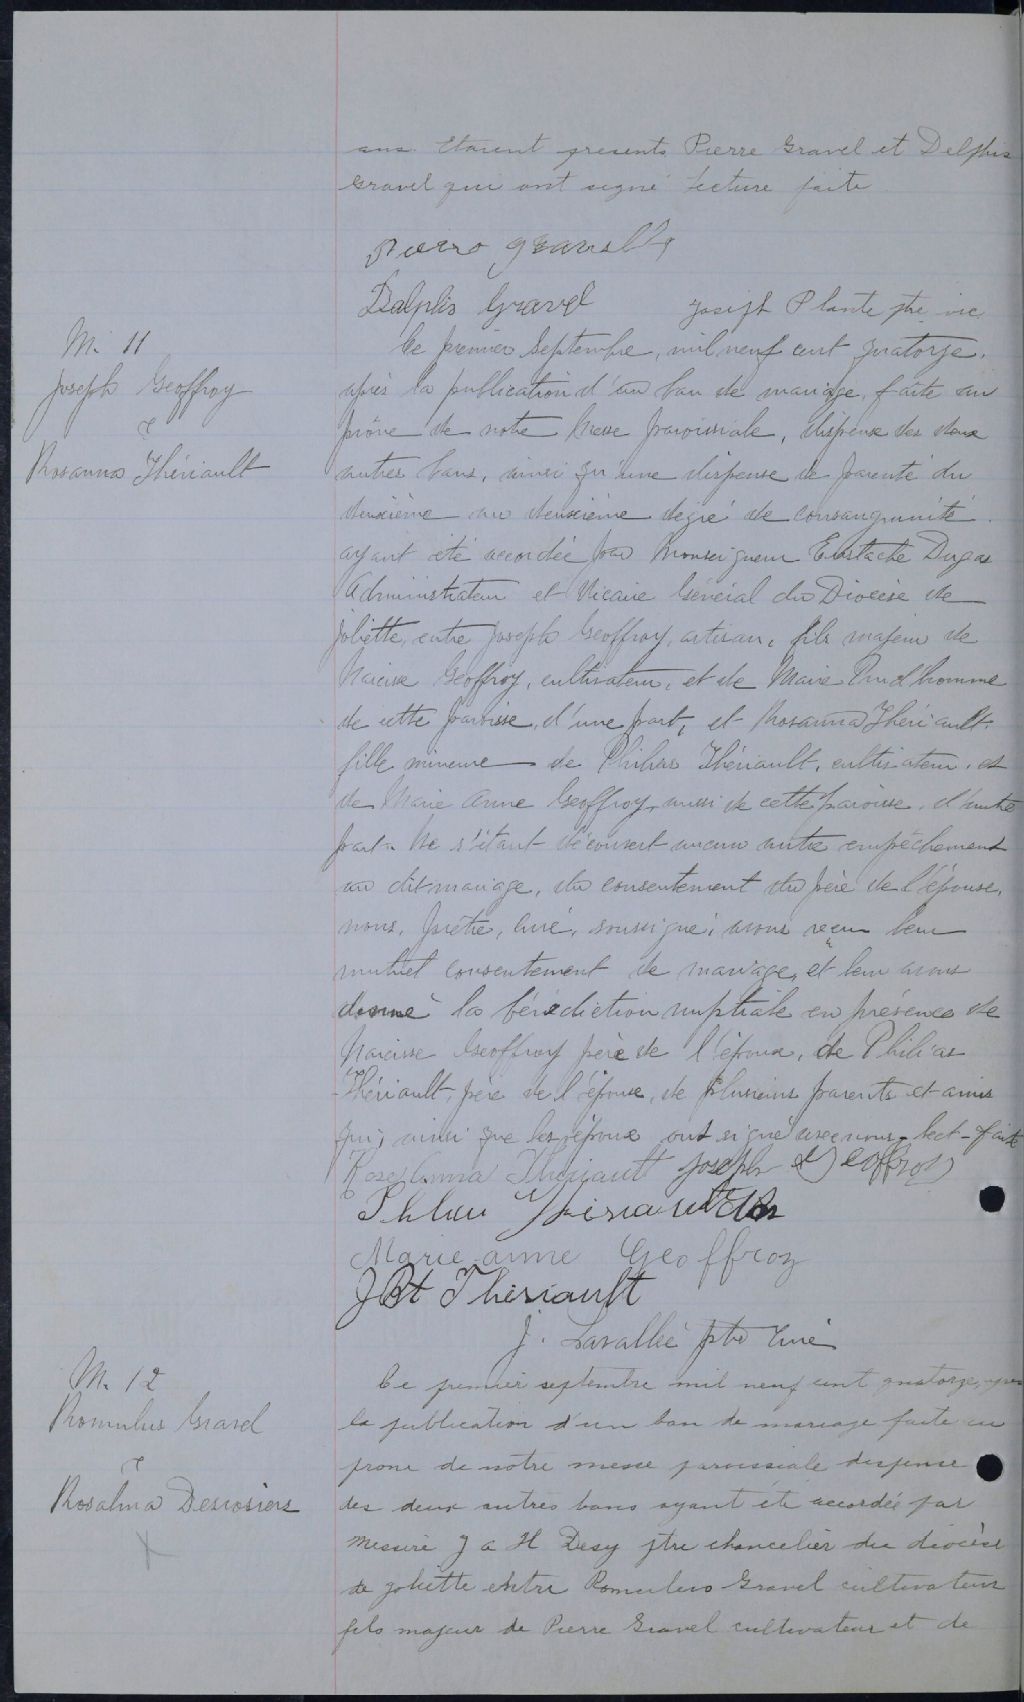 ans. Etaient presents Pierre Gravel et Delphis
Gravel qui ont signé Lecture faite
Pierre Gravel
Delphis Gravel Joseph Plante ptre vic.
M. 11
Joseph Geoffroy
&
Rosanna Thériault
Ce premier Septembre, mil neuf cent quatorze,
après la publication d'un ban de mariage, faite au
prône de notre Messe paroissiale, dispense des deux
autres bans, ainsi qu'une dispense de parenté du
deuxième au deuxième degré de consanguinité
ayant été accordée par Monseigneur Eustache Dugas
Administrateur et Vicaire Général du Diocèse de
Joliette, entre Joseph Geoffroy, artisan, fils majeur de
Narcisse Geoffroy, cultivateur, et de Marie Prud'homme
de cette paroisse, d'une part, et Rosanna Thériault,
fille mineure de Philias Thériault, cultivateur, et
de Marie Anne Geoffroy, aussi de cette paroisse, d'autre
part. Ne s'étant découvert aucun autre empêchement
au dit mariage, du consentement du père de l'épouse,
nous, prêtre, curé, soussigné, avons reçu leur
mutuel consentement de mariage, et leur avons
donné la bénédiction nuptiale en présence de
Narcisse Geoffroy père de l'époux, de Philias
Thériault, père de l'épouse, de plusieurs parents et amis
qui, ainsi que les époux ont signé avec nous. Lect-faite
Rose Anna Theriault Joseph Geoffroy
Marie-anne Geoffroy
JBt Theriault
J. Lavallée ptre Curé
M. 12
Romulus Gravel
&
Rosalma Desrosiers
X
Ce premier septembre mil neuf cent quatorze, apres
la publication d'un ban de mariage faite au
prone de notre messe paroissiale dispense
des deux autres bans ayant été accordée par
Messire J a H Desy ptre chancelier du diocèse
de Joliette entre Romulus Gravel cultivateur
fils majeur de Pierre Gravel cultivateur et de